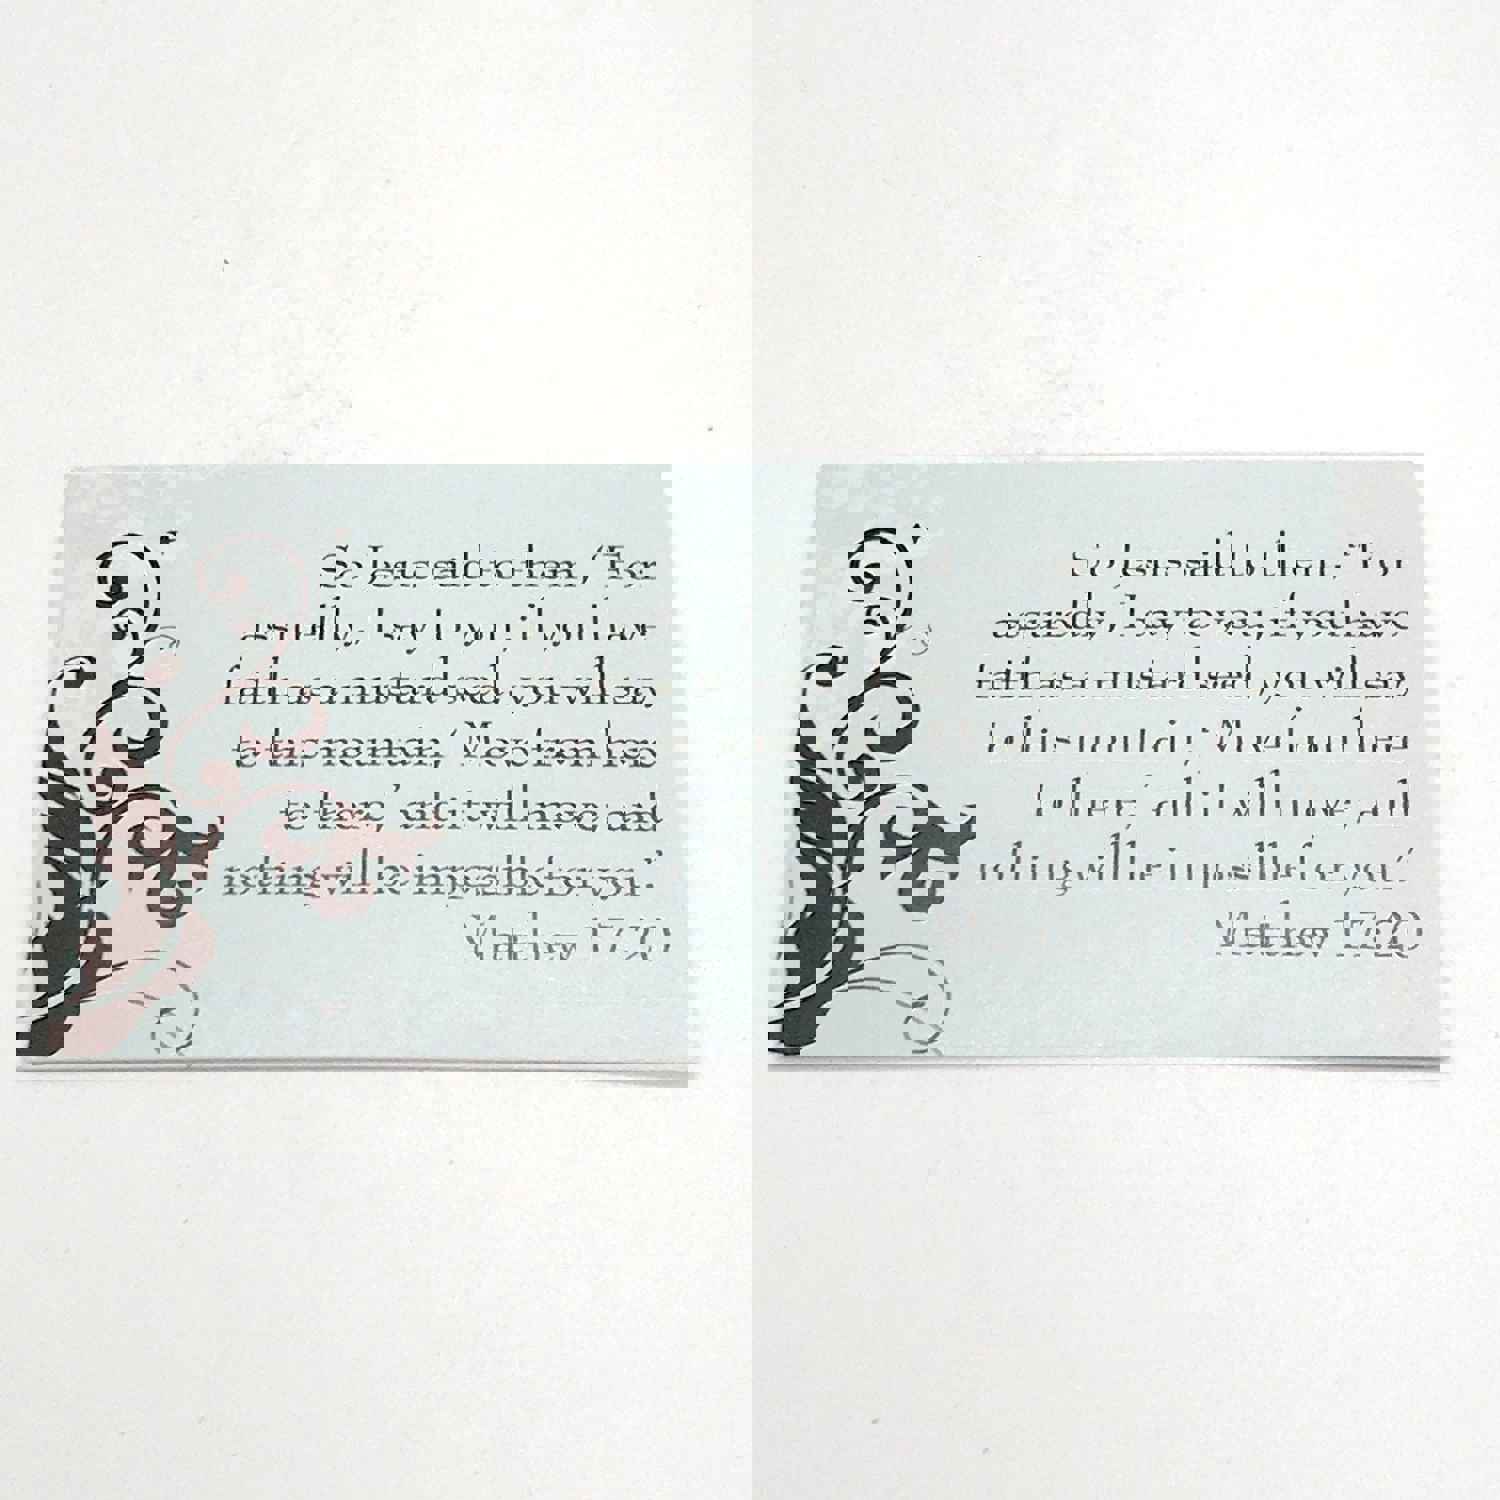 So Jesus said to them, "For
assuredly, I say to you, if you have
faith as a mustard seed, you will say
to this mountain, 'Move from here
to there,' and it will move; and
nothing will be impossible for you."
Matthew 17:20
So Jesus said to them, "For
assuredly, I say to you, if you have
faith as a mustard seed, you will say
to this mountain, 'Move from here
to there,' and it will move; and
nothing will be impossible for you."
Matthew 17:20